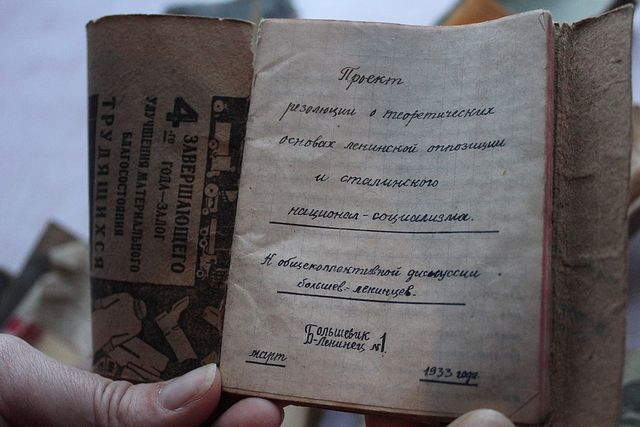 4-го ЗАВЕРШАЮЩЕГО
ГОДА—ЗАЛОГ
УЛУЧШЕНИЯ МАТЕРИАЛЬНОГО
БЛАГОСОСТОЯНИЯ
ТРУДЯЩИХСЯ
Проект
резолюции о теоретических
основах ленинской оппозиции
и сталинского
национал-социализма.
К общеколлективной дискуссии
большев.-ленинцев.
Большевик
-Ленинец №1
март
1933 года.